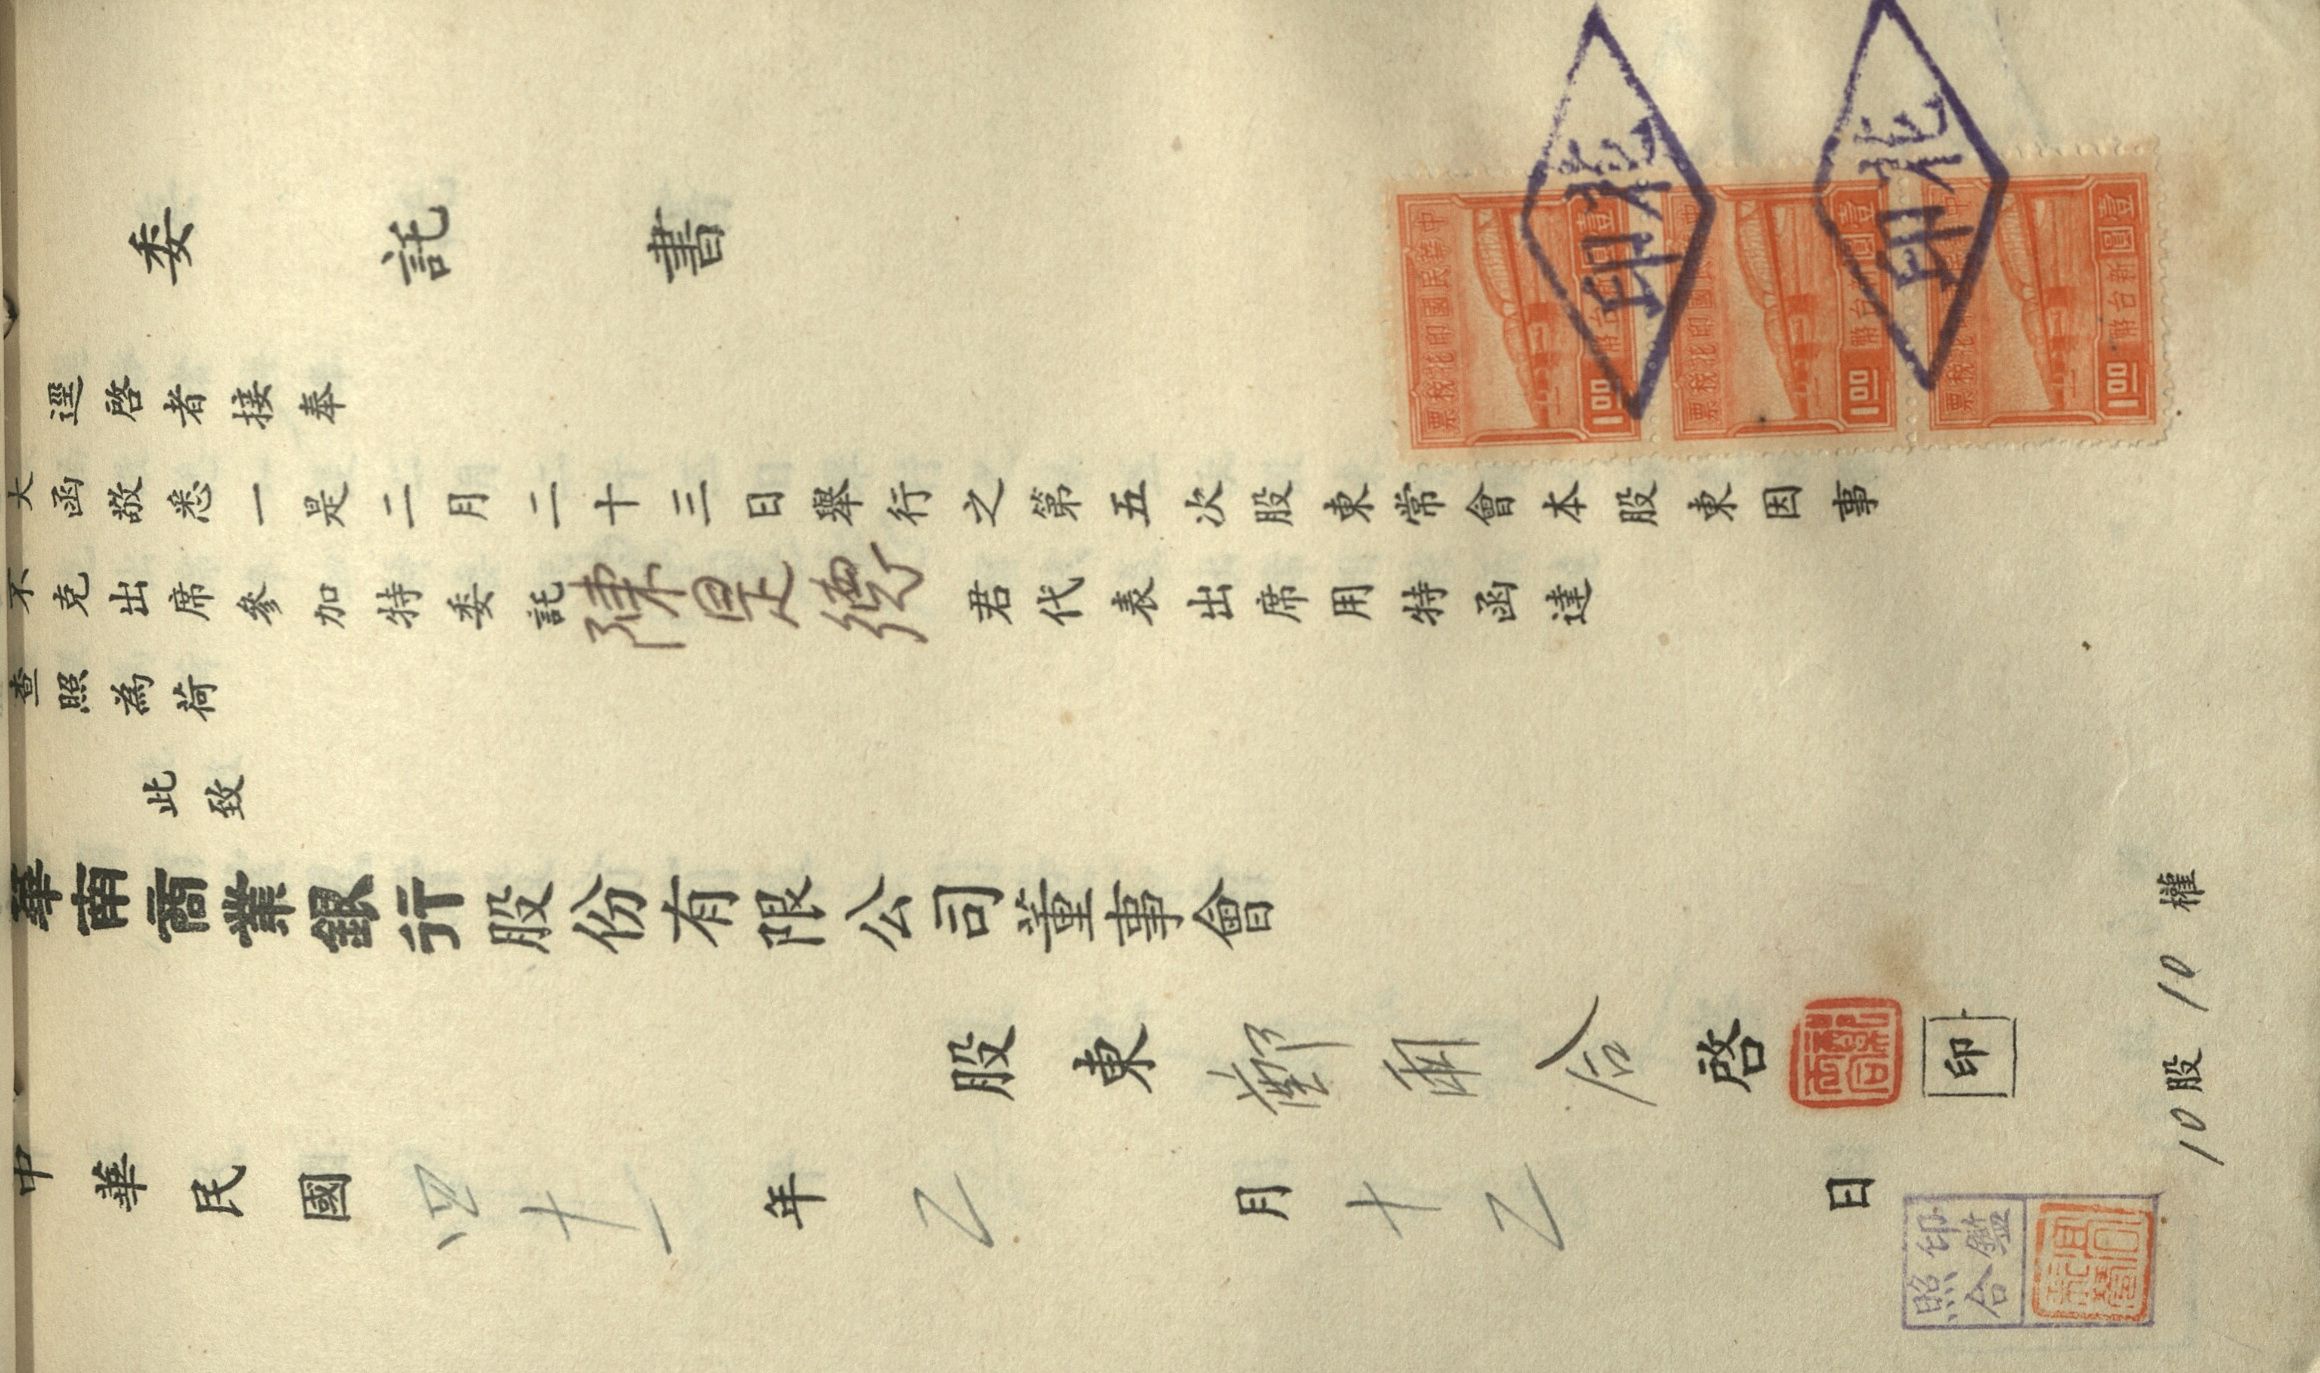 委託書
逕啓者接奉
大函敬悉一是二月二十三日舉行之第五次股東常會本股東因事
不克出席參加特委託陳是德君代表出席用特函達
查照為荷
此致
華南商業銀行股份有限公司董事會
股東鄭雨合啓
印
中華民國四十一年乙月十乙日
10股10權
印鑑照合
中華民國印花稅票
壹圓新台幣
1.00
中華民國印花稅票
壹圓新台幣
1.00
中華民國印花稅票
壹圓新台幣
1.00
印花
印花